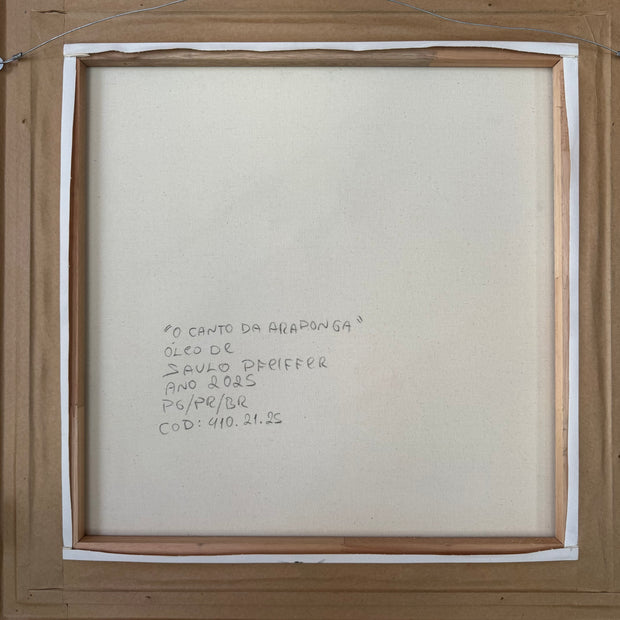 "O CANTO DA ARAPONGA"
ÓLEO DE
SAULO PFEIFFER
ANO 2025
PG/PR/BR
COD: 410.21.25